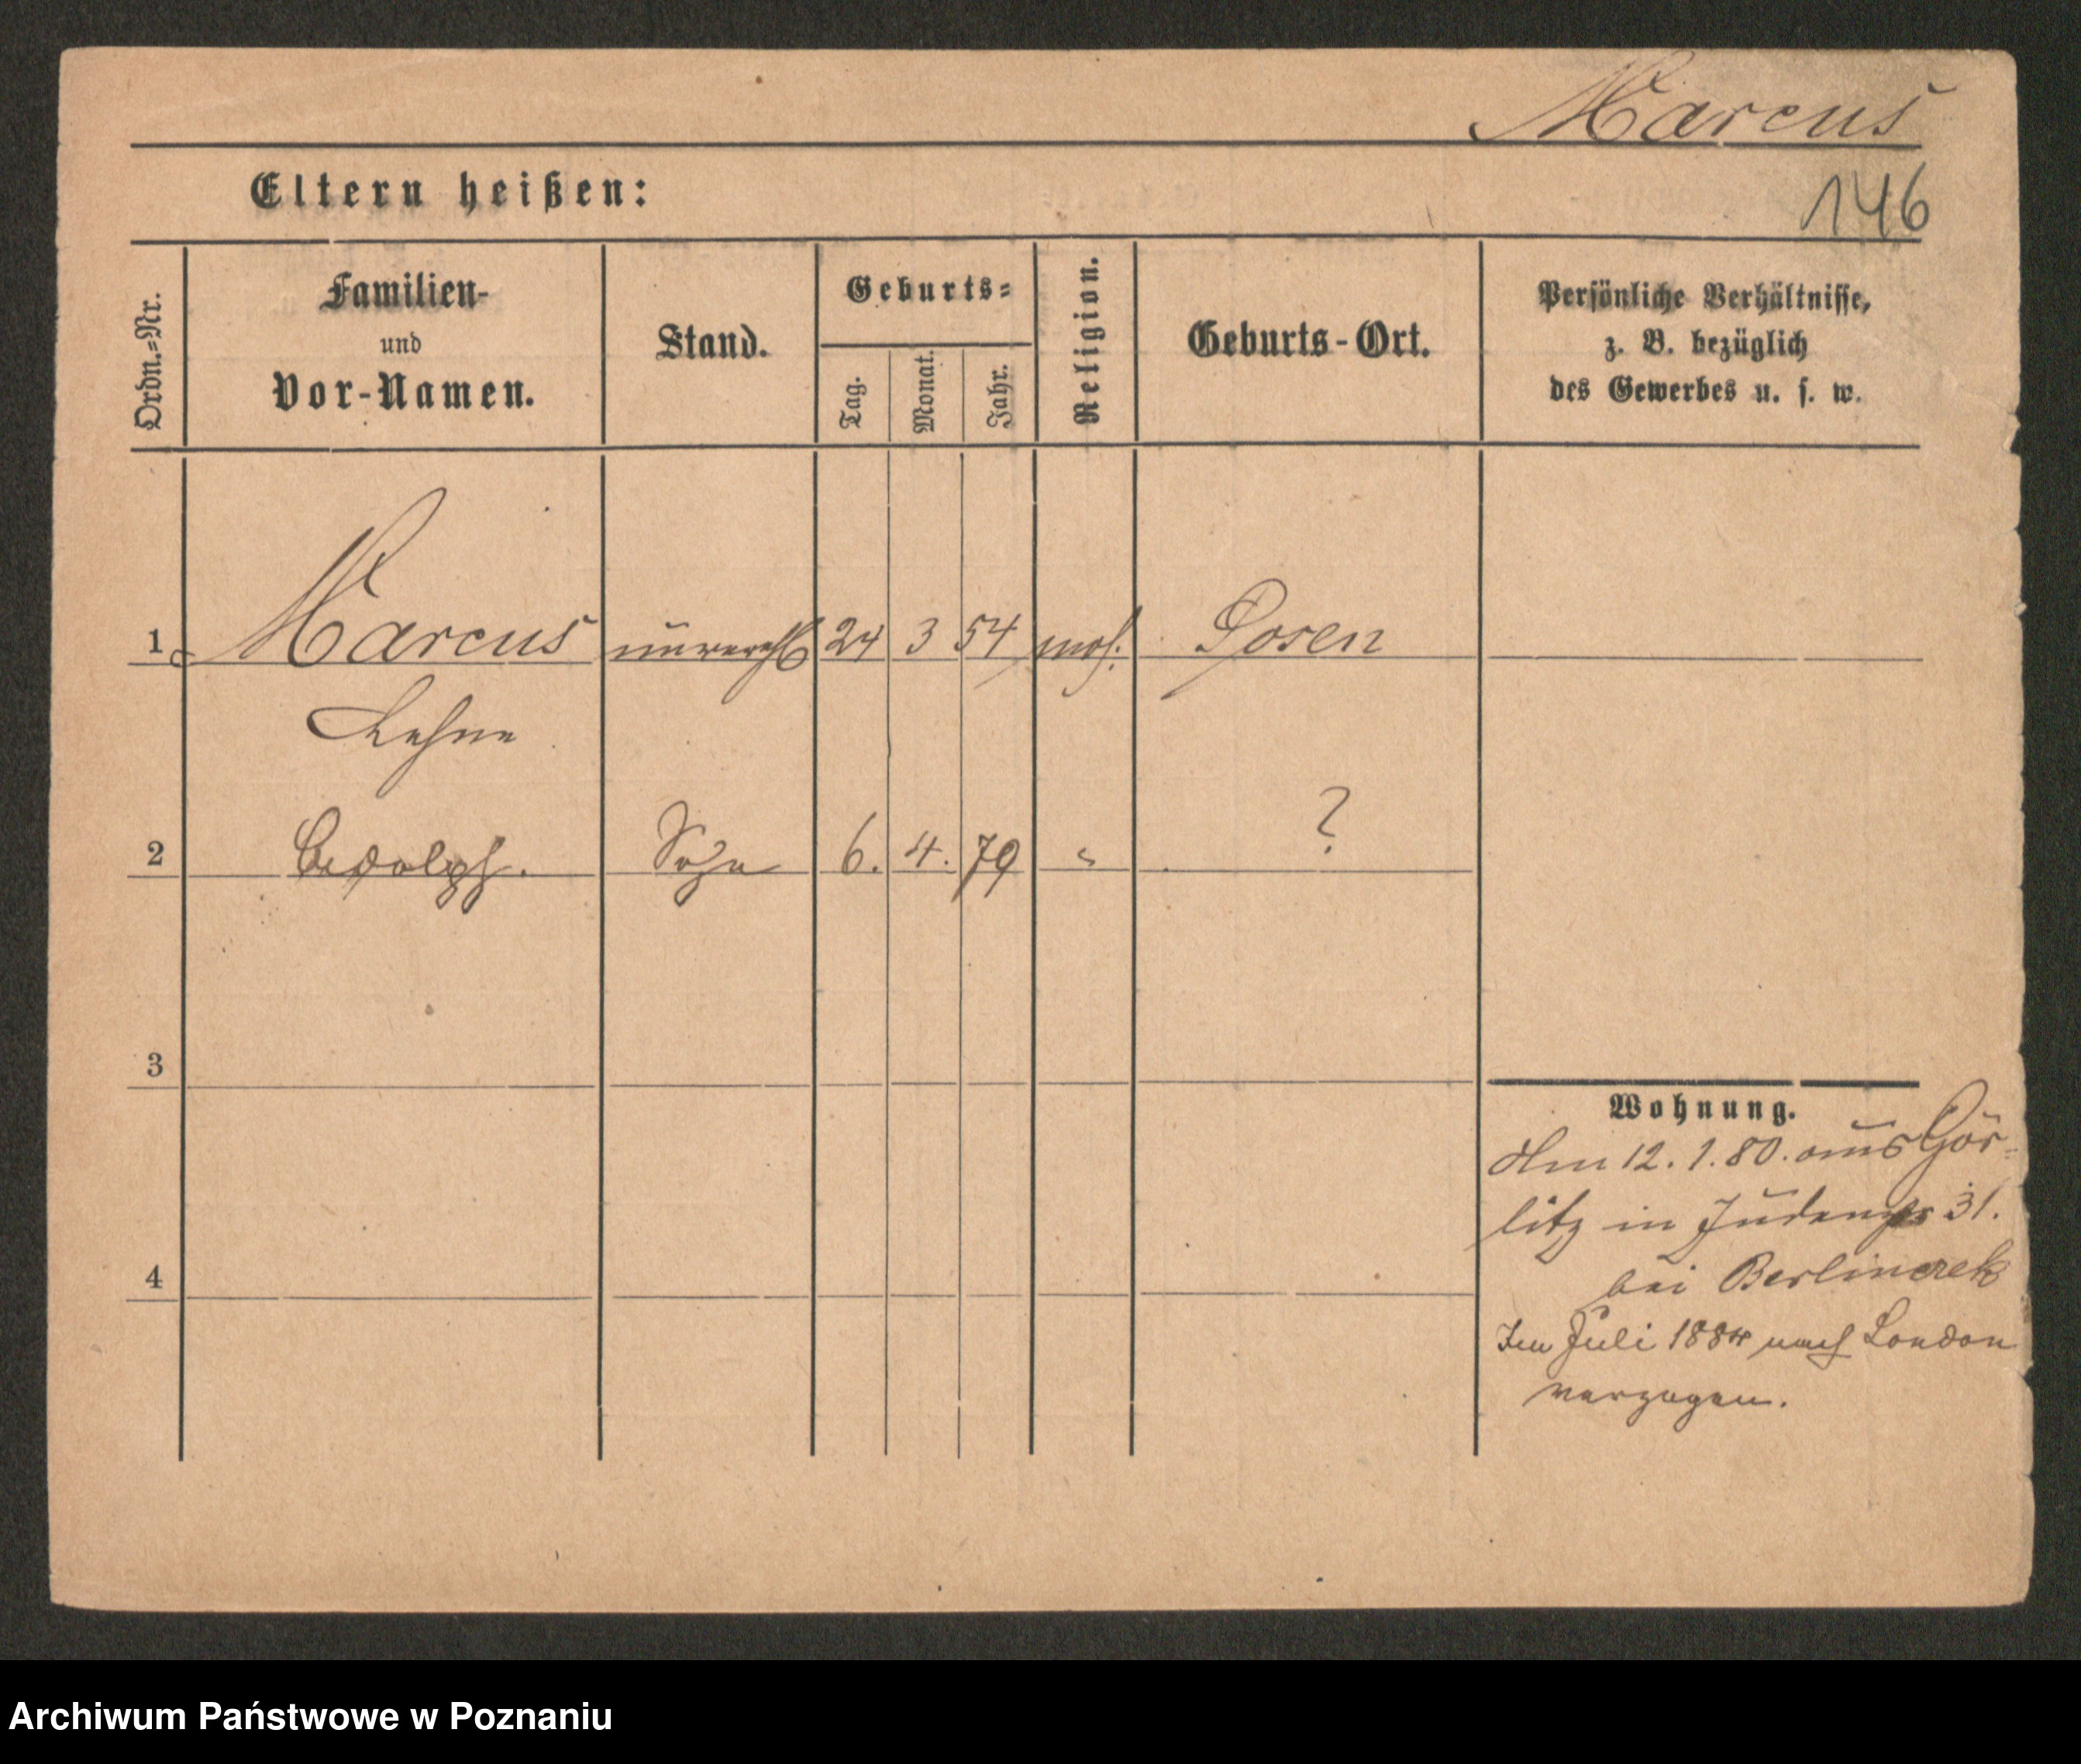 Marcus
146
Eltern heißen:
Ordn.=Nr.
Familien-
und
Vor-Namen.
Stand.
Geburts=
Tag.
Monat.
Jahr.
Religion.
Geburts-Ort.
Persönliche Verhältnisse,
z. B. bezüglich
des Gewerbes u. s. w.
1 Marcus unverehl 24 3 54 mos. Posen
2 Sohn 6. 4. 79 " ?
3
4
Wohnung.
Am 12. 1. 80. aus Gör=
litz in Judenstr 31.
bei Berlinerek
Im Juli 1884 nach London
verzogen.
Archiwum Państwowe w Poznaniu